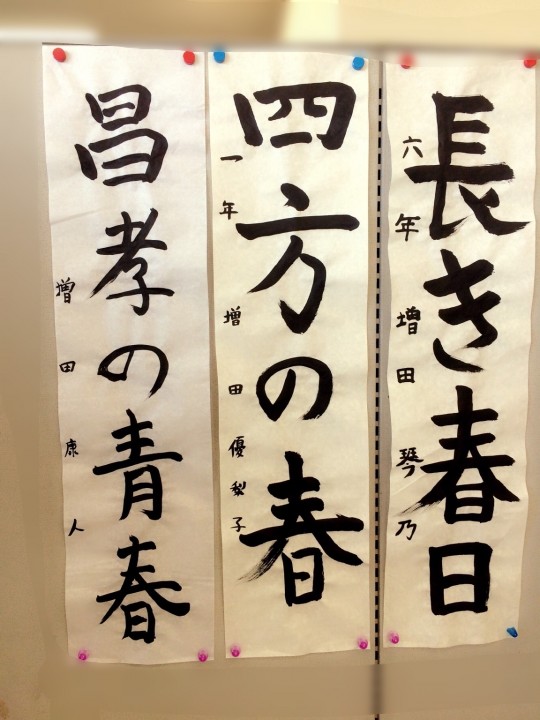 長き春日
六年 増田琴乃
四方の春
一年 増田優梨子
昌孝の青春
増田康人